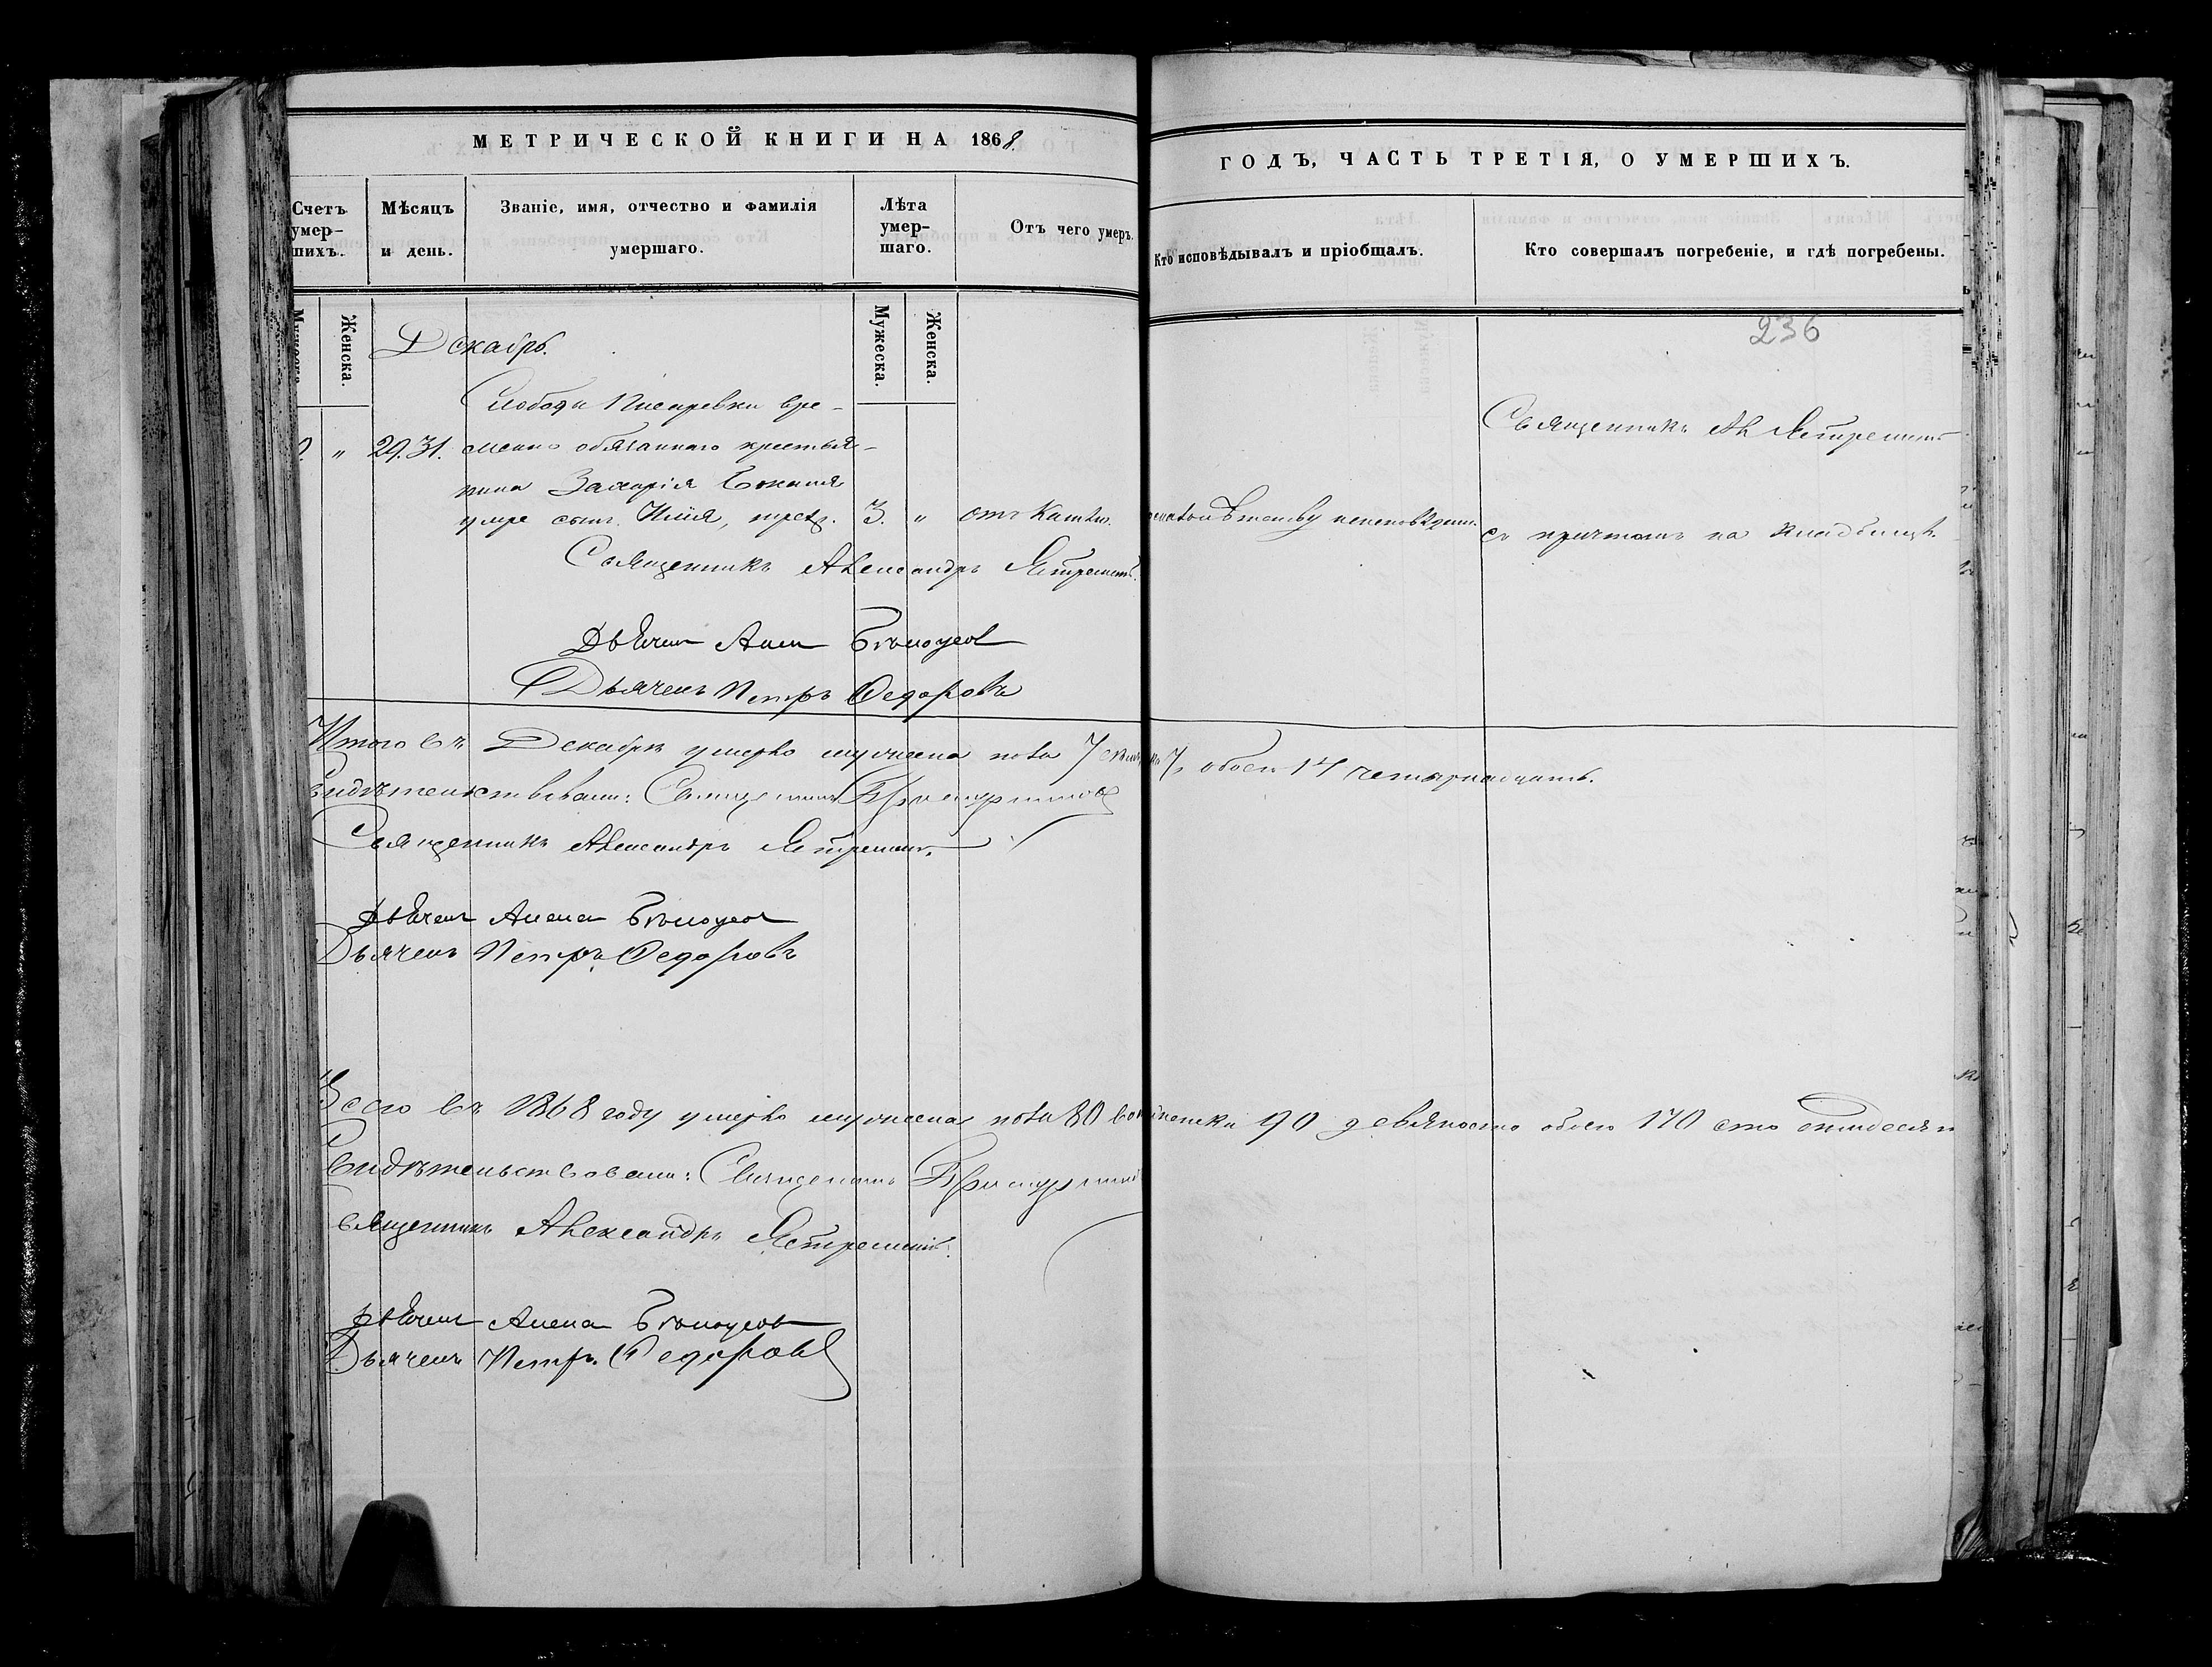 МЕТРИЧЕСКОЙ КНИГИ НА 1868.
ГОДЪ, ЧАСТЬ ТРЕТІЯ, О УМЕРШИХЪ.
Счетъ умер-шихъ.
Мѣсяцъ и день.
Званіе, имя, отчество и фамилія умершаго.
Лѣта умер-шаго.
Отъ чего умеръ.
Кто исповѣдывалъ и пріобщалъ.
Кто совершалъ погребеніе, и гдѣ погребены.
Мужеска.
Женска.
Мужеска.
Женска.
236
Декабрь.
Слободы Писаревки вре-
" 29. 31. менно обязаннаго крестья-
нина Захарія
умре сынъ Илія, 3. " отъ кашлю.
Священникъ Александръ
Петръ Федоровъ
Священникъ Ал
съ причтомъ на кладбищѣ.
Итого въ Декабрѣ умерло мужеска пола 7 женска 7, обоего 14 четырнадцать.
Свидѣтельствовали: Священникъ
Священникъ Александръ
Дьячекъ
Дьячекъ Петръ Федоровъ
Всего въ 1868 году умерло мужеска пола 80 женска 90 девяносто обоего 170 сто
Свидѣтельствовали: Священникъ
Священникъ Александръ
Дьячекъ
Дьячекъ Петръ Федоровъ